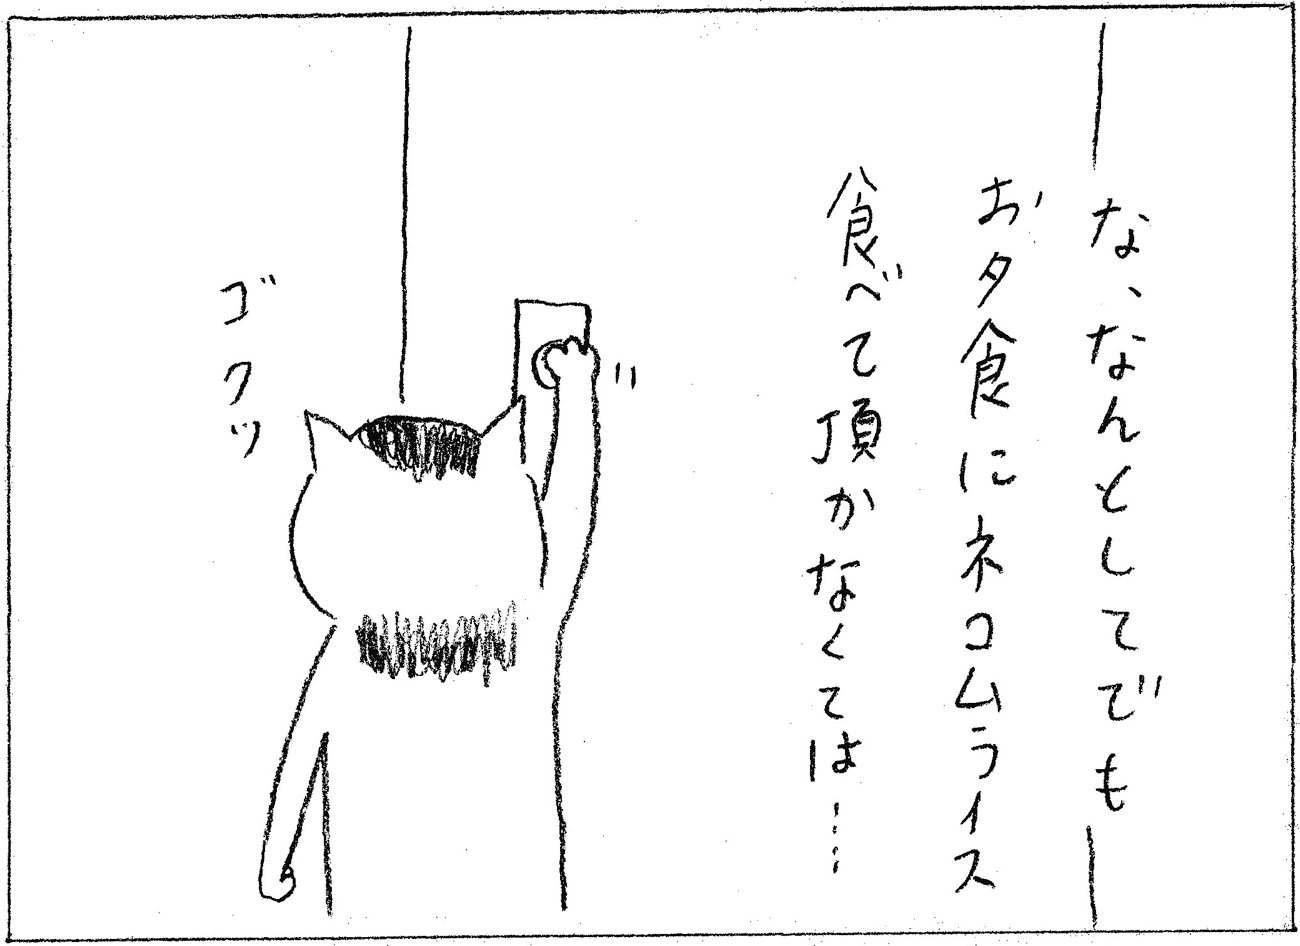 な、なんとしてでも
お夕食にネコムライス
食べて頂かなくては…
ゴクッ